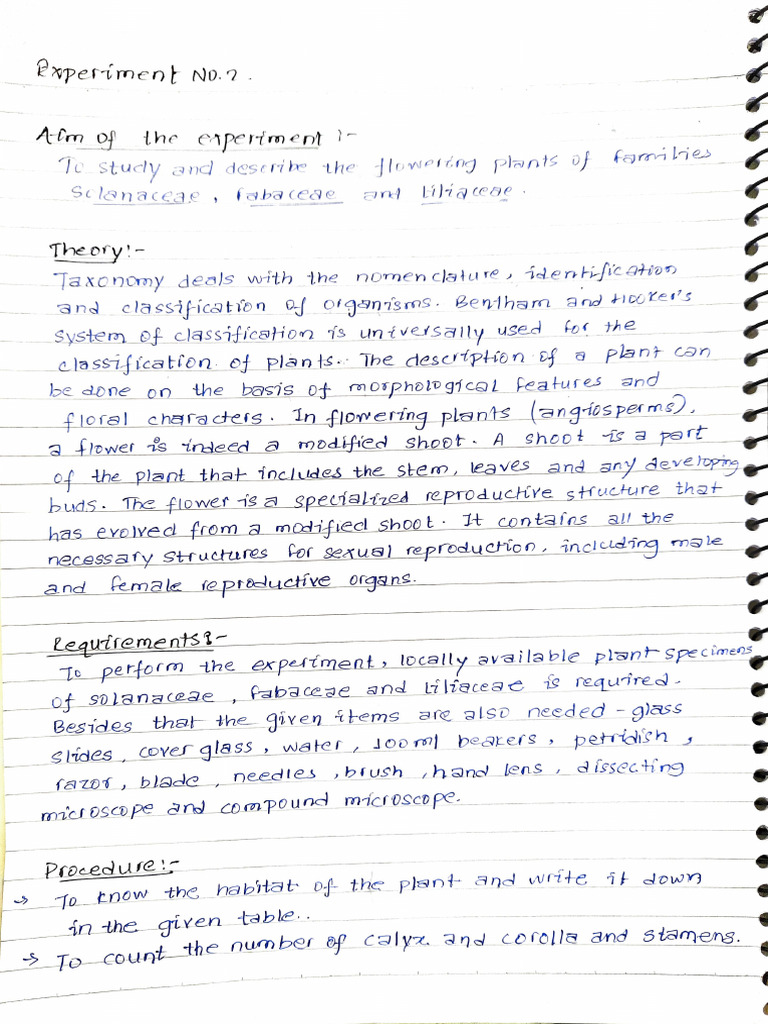 Experiment NO.2.
Aim of the experiment :-
To study and describe the flowering plants of families
Solanaceae, Fabaceae and Liliaceae.
Theory:-
Taxonomy deals with the nomenclature, identification
and classification of organisms. Bentham and Hooker's
system of classification is universally used for the
classification of plants.. The description of a plant can
be done on the basis of morphological features and
floral characters. In flowering plants (angiosperms),
a flower is indeed a modified shoot. A shoot is a part
of the plant that includes the stem, leaves and any developing
buds. The flower is a specialized reproductive structure that
has evolved from a modified shoot. It contains all the
necessary structures for sexual reproduction, including male
and female reproductive organs.
Requirements:-
To perform the experiment, locally available plant specimens
of solanaceae, fabaceae and Liliaceae is required.
Besides that the given items are also needed - glass
slides, cover glass, water, 100ml beakers, petridish,
razor, blade, needles, brush, hand lens, dissecting
microscope and compound microscope.
Procedure:-
→ To know the habitat of the plant and write it down
in the given table..
→ To count the number of calyx and corolla and stamens.